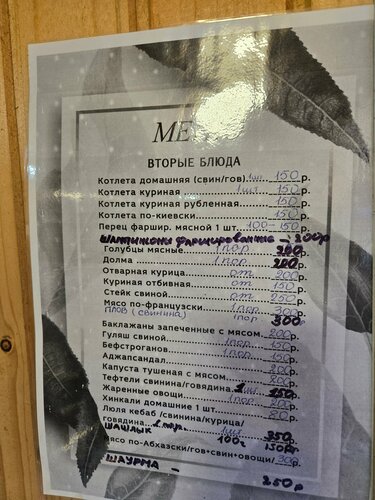 МЕ
ВТОРЫЕ БЛЮДА
Котлета домашняя (свин/гов) 1шт. 150р.
Котлета куриная 1шт. 150р.
Котлета куриная рубленная 150р.
Котлета по-киевски 150р.
Перец фаршир. мясной 1 шт. 100-150р.
Шампиньоны фаршированные - 200р
Голубцы мясные 1 пор. 200р.
Долма 1 пор. 200р.
Отварная курица от 200р.
Куриная отбивная от 150р.
Стейк свиной от 250р.
Мясо по-французски 300р.
ПЛОВ (свинина) 1пор. 300р.
Баклажаны запеченные с мясом. 200р.
Гуляш свиной 1пор. 150р.
Бефстроганов 1пор. 150р.
Аджапсандал 150р.
Капуста тушеная с мясом 200р.
Тефтели свинина/говядина 150р.
Жаренные овощи 1пор. 200р.
Хинкали домашние 1 шт. 80р.
Люля кебаб /свинина/курица/
говядина 1шт. 250р.
ШАШЛЫК 100г 150р.
Мясо по-Абхазски/гов+свин+овощи/300р.
ШАУРМА - 250р